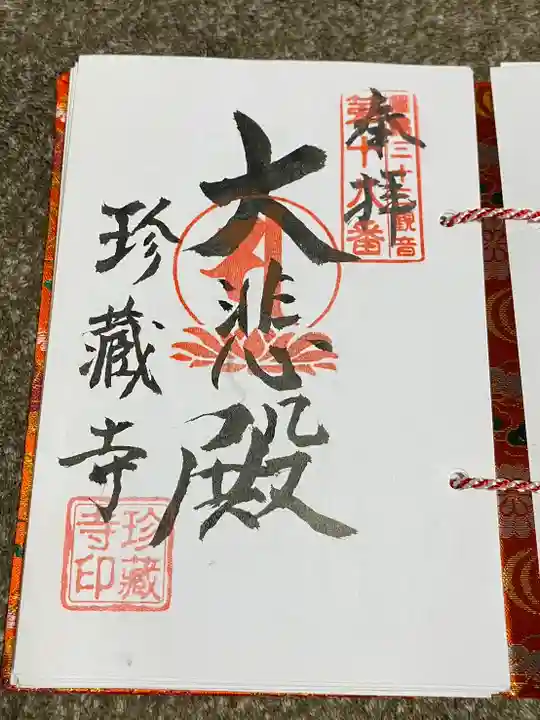 奉拝
三十三觀音
第十番
大悲殿
珍蔵寺
珍藏
寺印